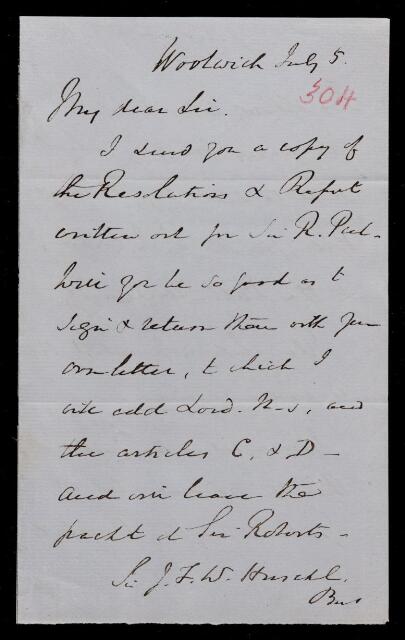 Woolwich July 5.
304
My dear Sir.
I send you a copy of
the Resolutions & Report
written out for Sir R. Peel -
Will you be so good as to
sign & return them with your
own letter, to which I
will add Lord. N-s, and
the articles C, & D -
and will leave the
packet at Sir Roberts -
Sir J. F. W. Herschel.
Bart